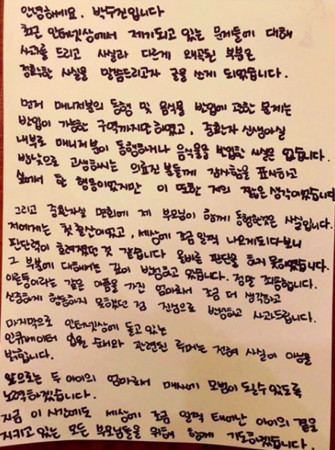 안녕하세요. 박수진입니다
최근 인터넷상에서 제기되고 있는 문제들에 대해
사과를 드리고 사실과 다르게 왜곡된 부분은
정확한 사실을 말씀드리고자 글을 쓰게 되었습니다.
먼저 매니저분의 동행 및 음식물 반입에 관한 문제는
반입이 가능한 구역까지만 하였고, 중환자 신생아실
내부로 매니저분이 동행하거나 음식물을 반입한 사실은 없습니다.
밤낮으로 고생하시는 의료진 분들께 감사함을 표시하고
싶어서 한 행동이었지만 이 또한 저의 짧은 생각이었습니다
그리고 중환자실 면회에 제 부모님이 함께 동행한것은 사실입니다.
저에게는 첫 출산이었고, 세상에 조금 일찍 나오게되다보니
판단력이 흐려졌던 것 같습니다. 올바른 판단을 하지 못하였습니다.
그 부분에 대해서는 깊이 반성하고 있습니다. 정말 죄송합니다.
이른둥이라는 같은 아픔을 가진 엄마로서 조금 더 생각하고
신중하게 행동하지 못했던 점 진심으로 반성하고 사과드립니다.
마지막으로 인터넷상에 돌고 있는
인큐베이터 입원 순서와 관련된 루머는 전혀 사실이 아님을
밝힙니다.
앞으로는 두 아이의 엄마로서 매사에 모범이 되려 할수있도록
노력하겠습니다.
지금 이 시간에도 세상에 조금 일찍 태어난 아이의 곁을
지키고 있는 모든 부모님들을 위해 함께 기도하겠습니다.